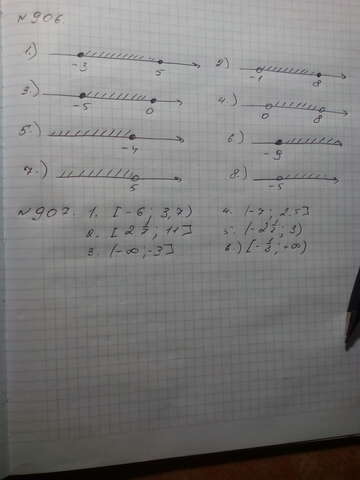 № 906.
1.) -3 5 2) -1 8
3.) -5 0 4.) 0 8
5.) -4 6) -9
7.) 5 8.) -5
№ 907. 1. [-6; 3,7) 4. (-7; 2.5]
2. [2 1/7; 11] 5. (-2 1/2; 3)
3. (-∞; -3] 6.) [-1/3; +∞)